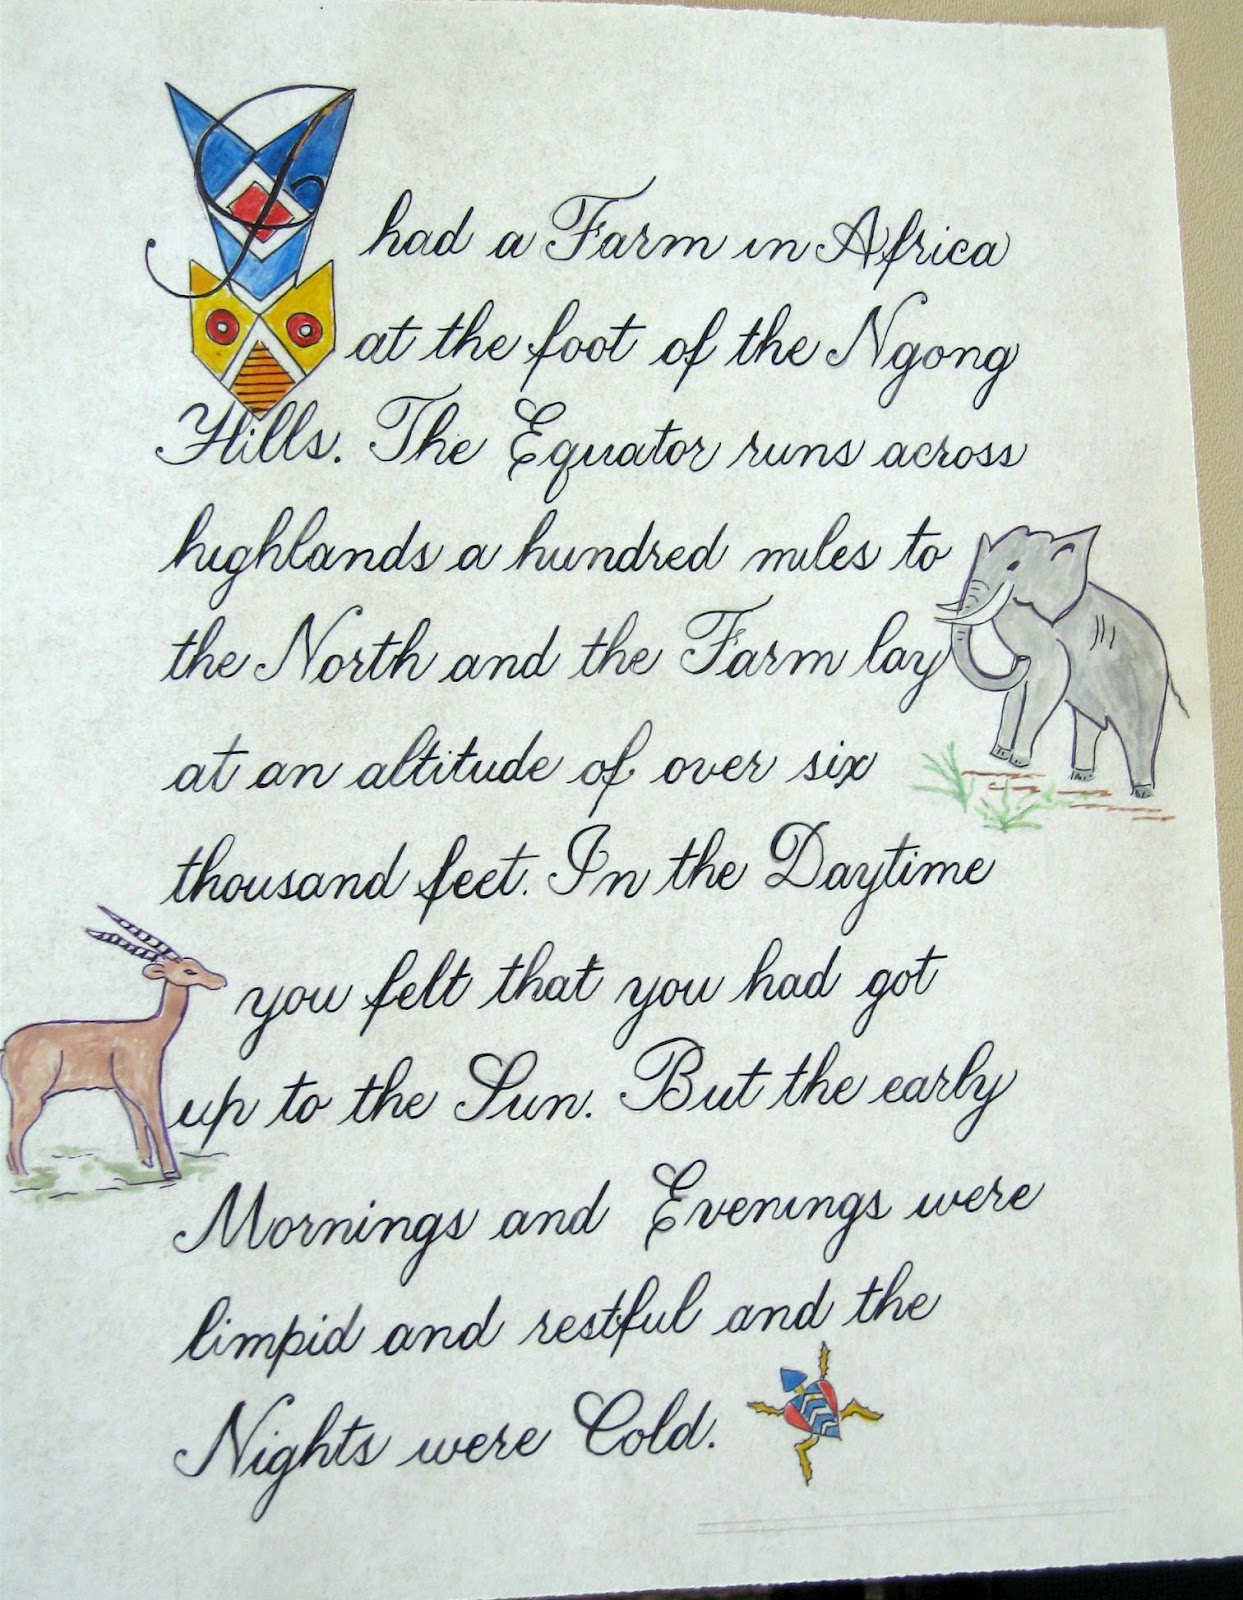 I had a Farm in Africa
at the foot of the Ngong
Hills. The Equator runs across
highlands a hundred miles to
the North and the Farm lay
at an altitude of over six
thousand feet. In the Daytime
you felt that you had got
up to the Sun. But the early
Mornings and Evenings were
limpid and restful and the
Nights were Cold.